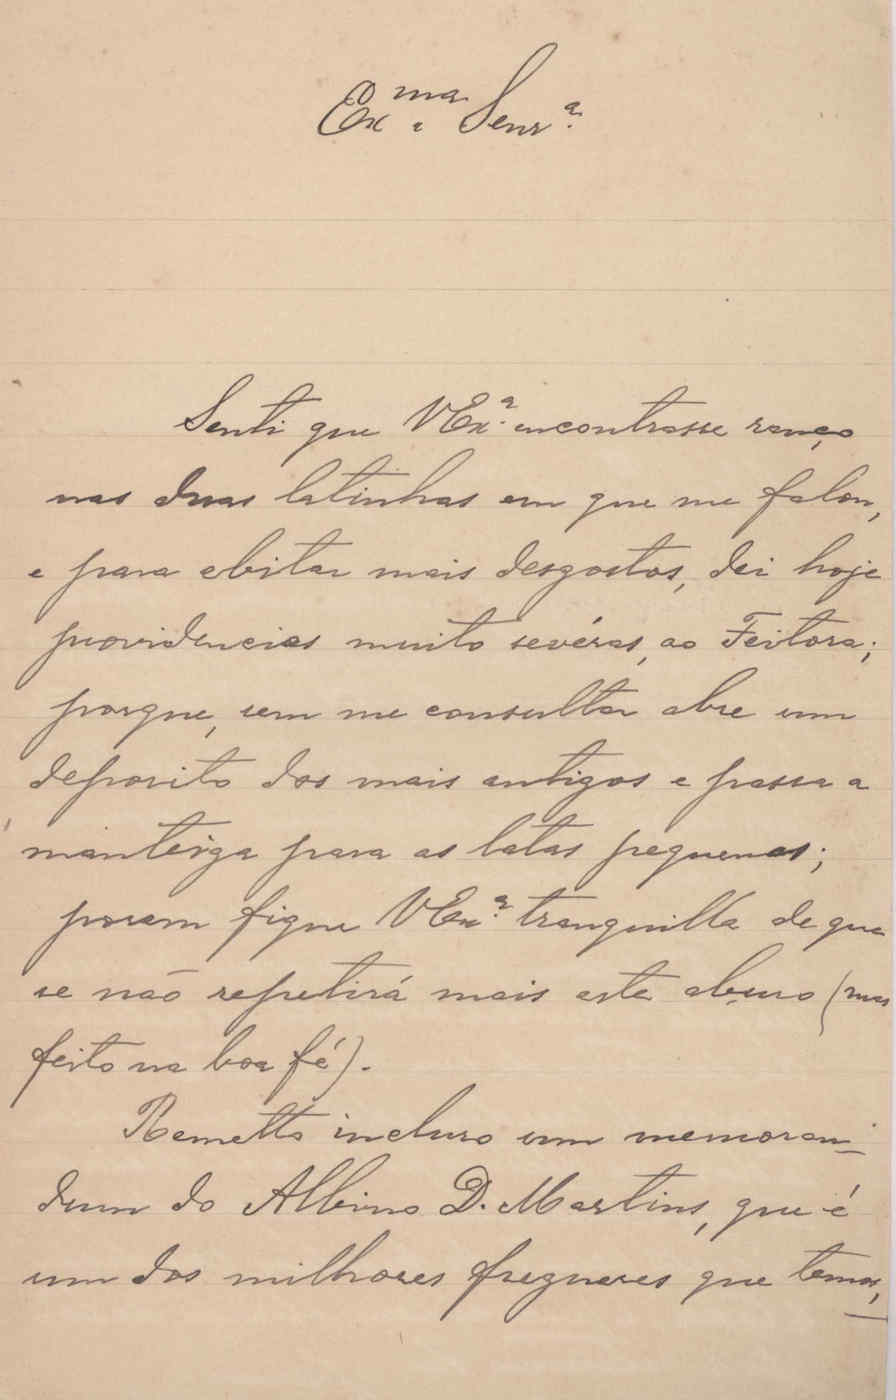 Ex.ma Senr.a
Senti que VEx.a encontrasse ranço
nas duas latinhas em que me falou,
e para ebitar mais desgostos, dei hoje
providencias muito sevéras, ao Feitora;
porque, sem me consultar abre um
deposito dos mais antigos e passa a
manteiga para as latas pequenas;
poram fique VEx.a tranquilla de que
se não repetirá mais este abuso (mas
feito na boa fé).
Remetto incluso um memoran-
dum do Albino D. Martins, que é
um dos milhores freguezes que temos,